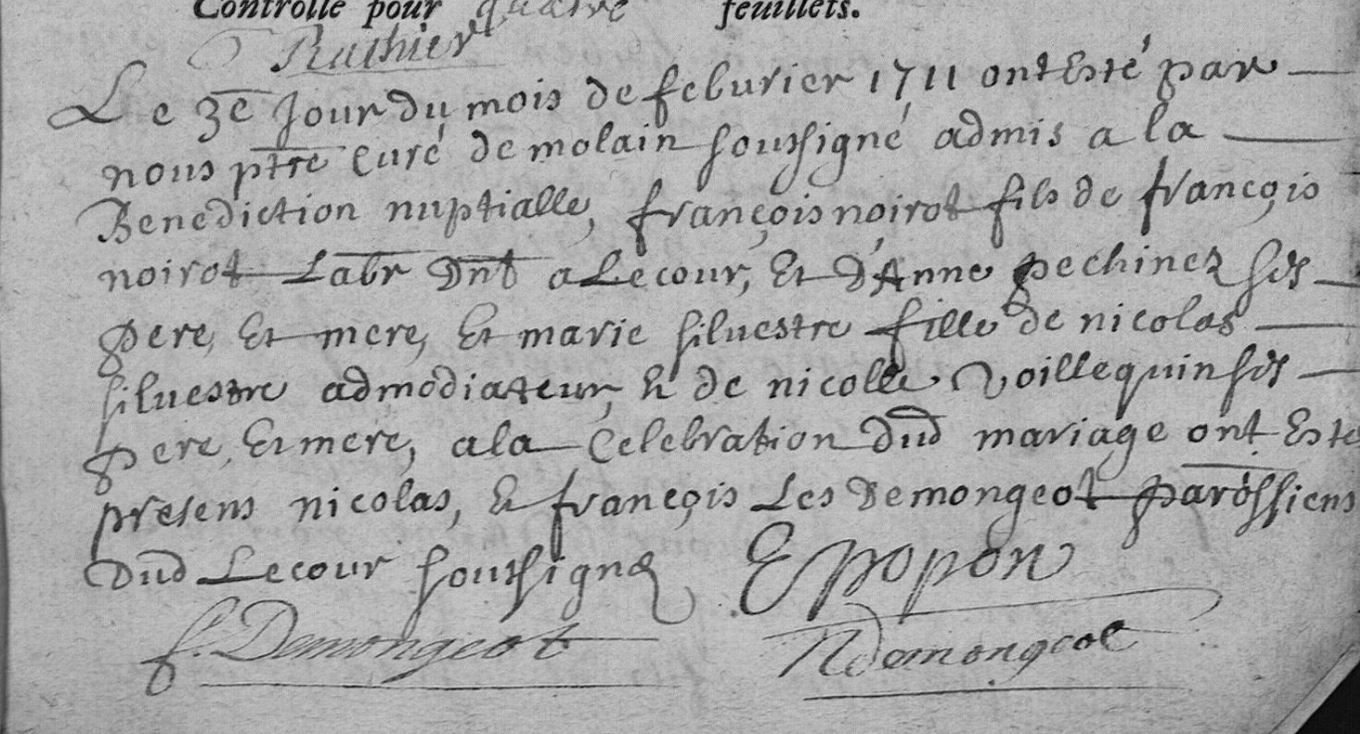 Controlle pour quatre feuillets.
Rathier
Le 3e Jour du mois de feburier 1711 ont Esté par
nous ptre Curé de molain soussigné admis a la
Benediction nuptialle, françois noirot fils de françois
noirot Labr Dnt a Lecour, Et D'Anne pechinez ses
pere, Et mere, Et marie siluestre fille de nicolas
siluestre admodiateur, & de nicolle Voillequin ses
pere, Et mere, a la Celebration dud mariage ont Este
presens nicolas, & françois Les Demongeot paroissiens
Dud Lecour soussignez E popon
f. Demongeot N demongeot